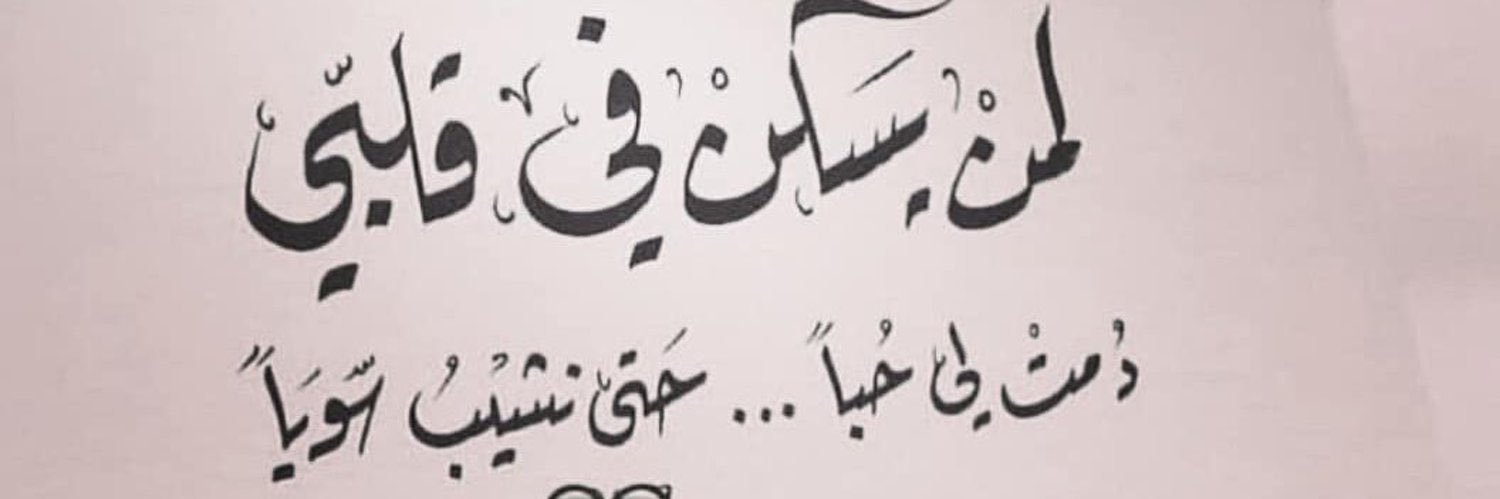 لمنْ يسَكنْ في قلبّي
دُمتْ لي حُباً ... حَتى نشيْبُ سّويَاً